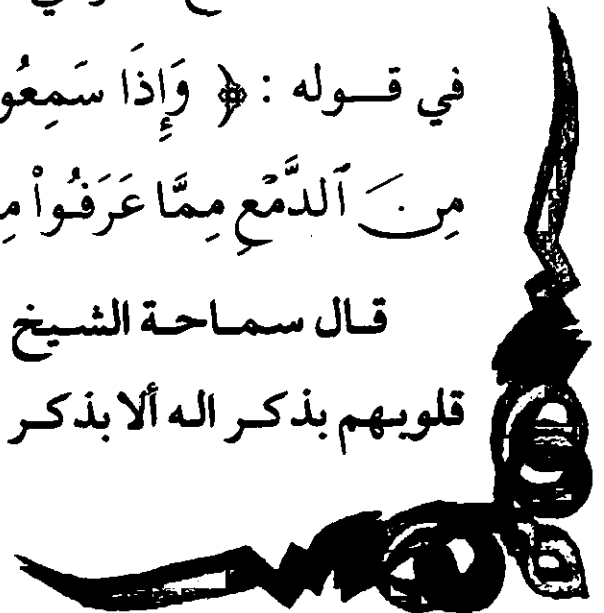 في قوله : ﴿ وَإِذَا سَمِعُو
مِنَ ٱلدَّمْعِ مِمَّا عَرَفُوا۟ مِ
قال سماحة الشيخ
قلوبهم بذكر اله ألا بذكر